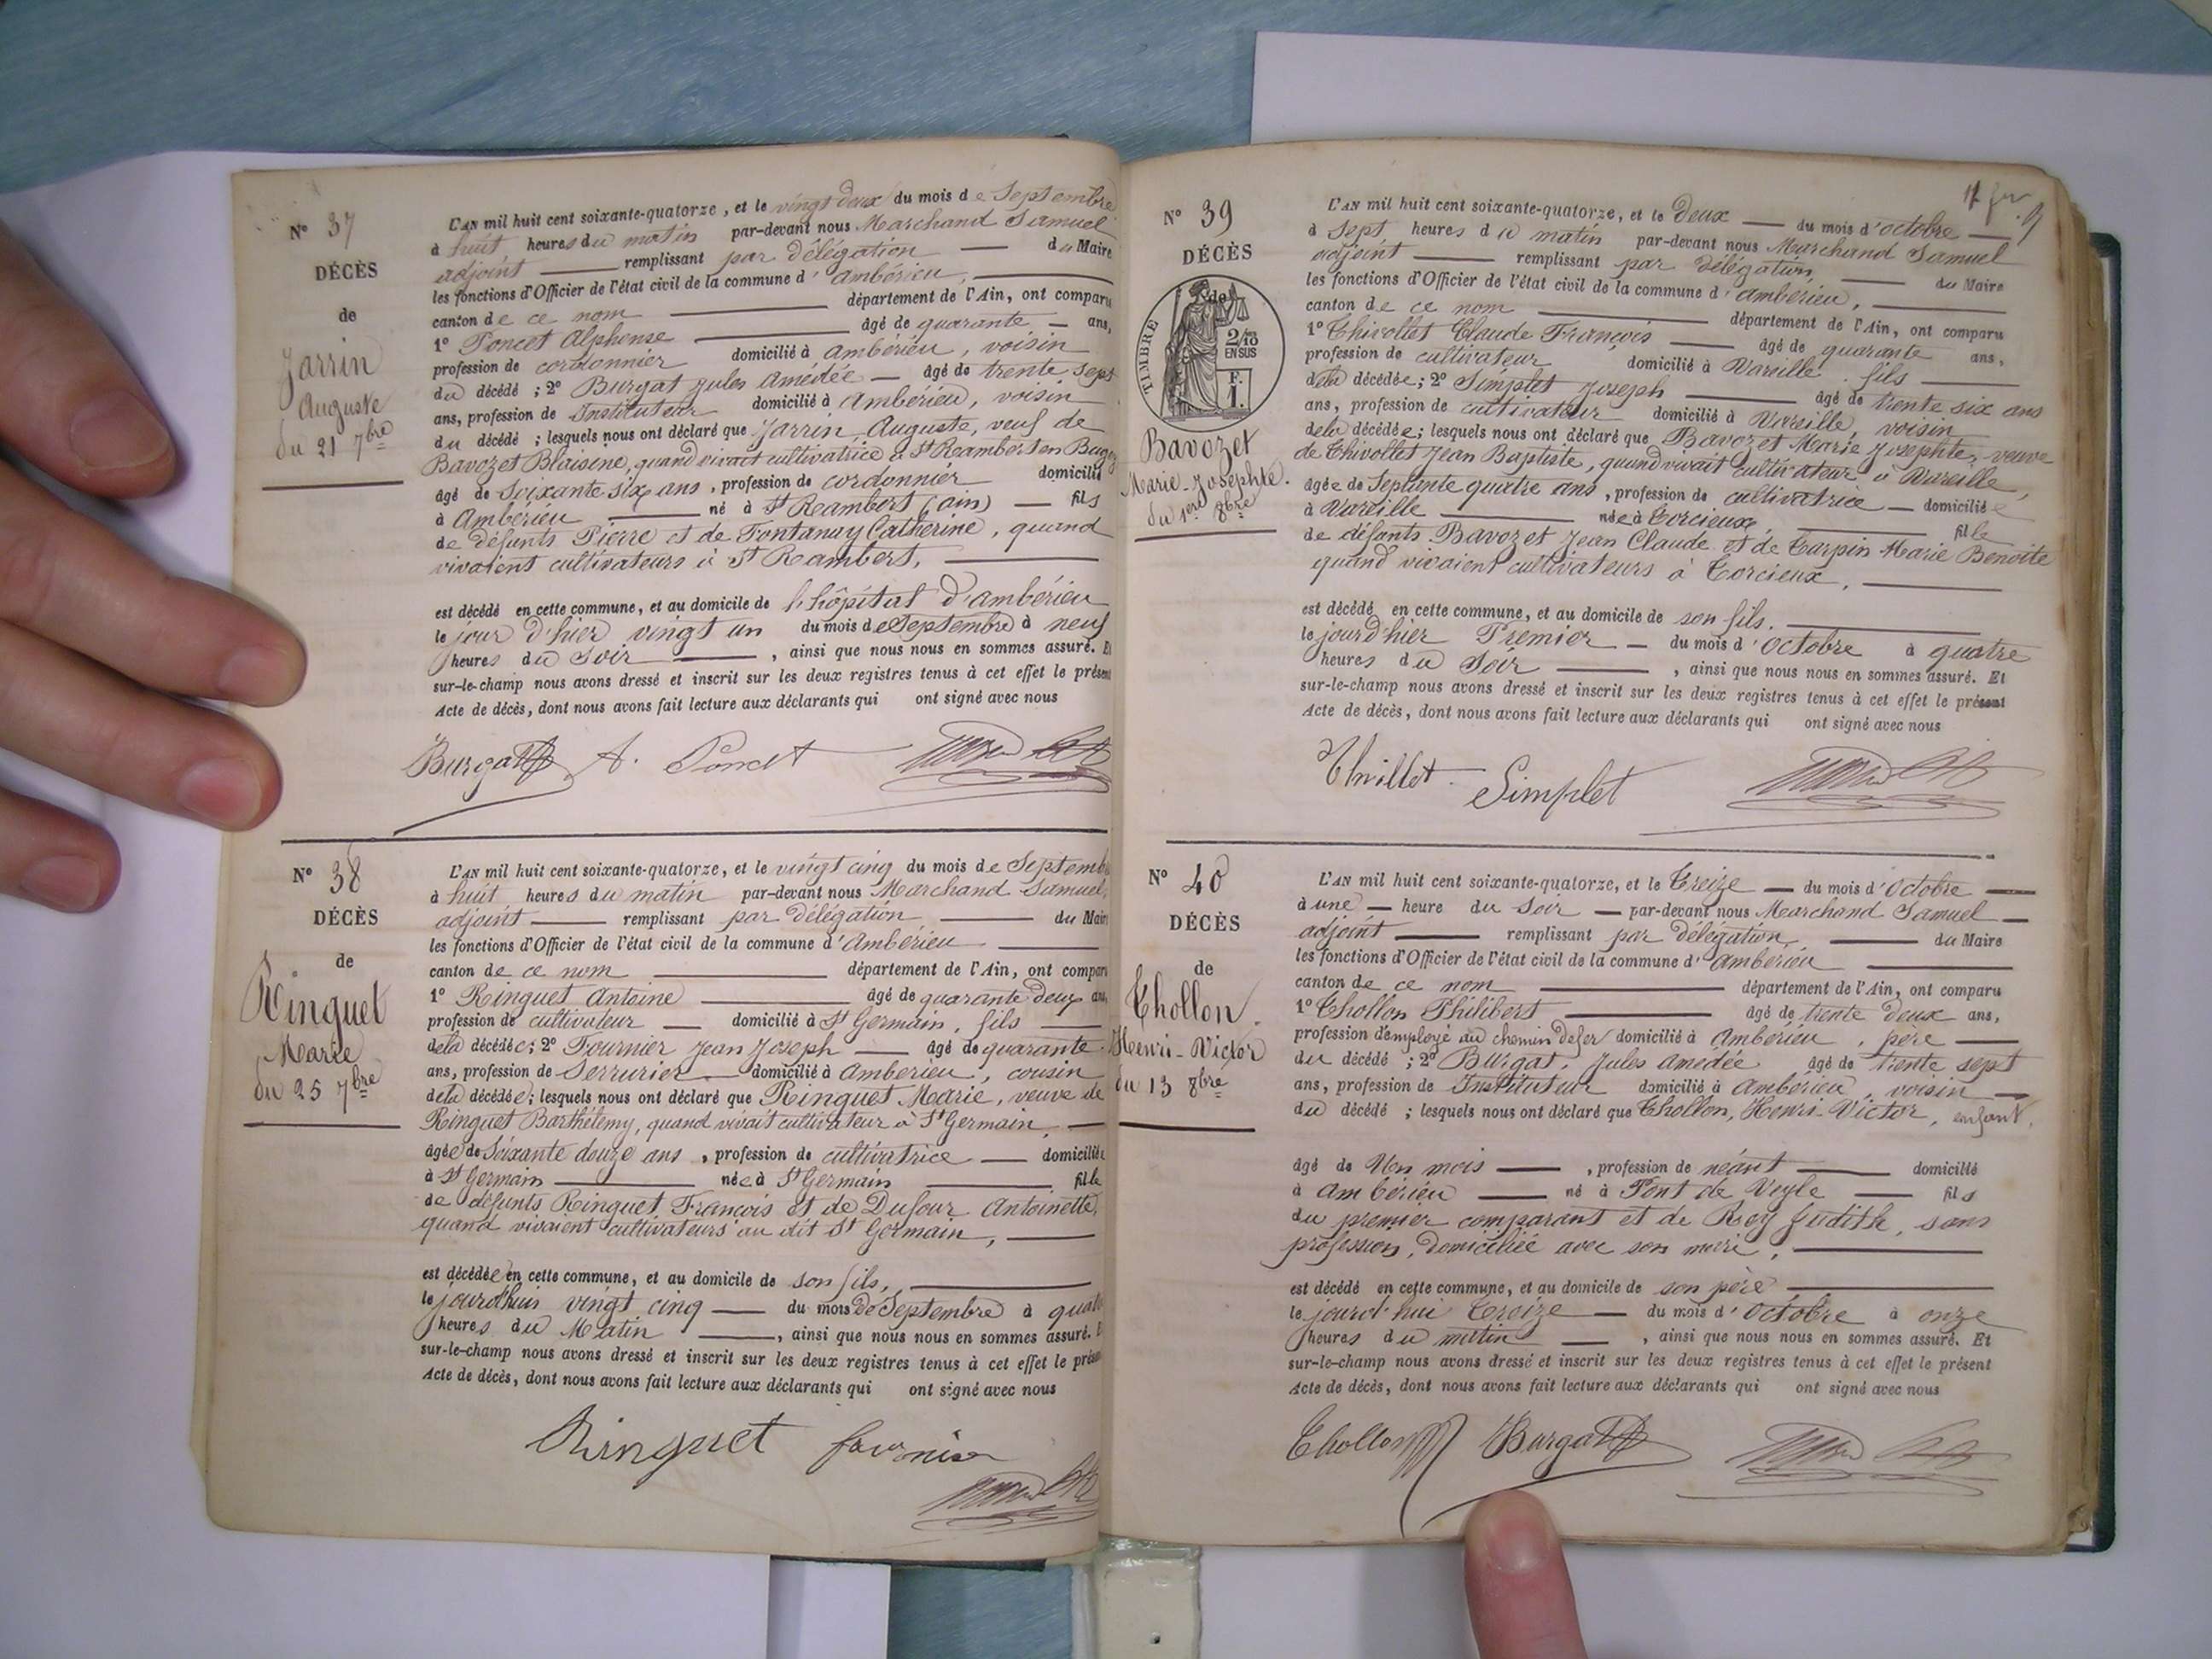 N° 37
DÉCÈS
de
Jarrin
Auguste
du 21 7bre
L'AN mil huit cent soixante-quatorze, et le vingt deux du mois de Septembre
à huit heures du matin par-devant nous Marchand Samuel
adjoint remplissant par délégation du Maire
les fonctions d'Officier de l'état civil de la commune d'Ambérieu,
canton de ce nom département de l'Ain, ont comparu
1° Poncet Alphonse âgé de quarante ans,
profession de cordonnier domicilié à Ambérieu, voisin
du décédé ; 2° Burgat Jules Amédée âgé de trente sept
ans, profession de Instituteur domicilié à Ambérieu, voisin
du décédé ; lesquels nous ont déclaré que Jarrin Auguste, veuf de
Bavozet Blaisine, quand vivait cultivatrice à St Rambert en Bugey
âgé de Soixante six ans, profession de cordonnier domicilié
à Ambérieu né à St Rambert (ain) fils
de défunts Pierre et de Fontanay Catherine, quand
vivaient cultivateurs à St Rambert,
est décédé en cette commune, et au domicile de l'hôpital d'ambérieu
le jour d'hier vingt un du mois de Septembre à neuf
heures du Soir, ainsi que nous nous en sommes assuré. Et
sur-le-champ nous avons dressé et inscrit sur les deux registres tenus à cet effet le présent
Acte de décès, dont nous avons fait lecture aux déclarants qui ont signé avec nous
Burgat A. Poncet
N° 38
DÉCÈS
de
Ringuet
Marie
du 25 7bre
L'AN mil huit cent soixante-quatorze, et le vingt cinq du mois de Septemb
à huit heures du matin par-devant nous Marchand Samuel,
adjoint remplissant par délégation du Mair
les fonctions d'Officier de l'état civil de la commune d'Ambérieu
canton de ce nom département de l'Ain, ont compar
1° Ringuet Antoine âgé de quarante deux ans,
profession de cultivateur domicilié à St Germain, fils
de la décédée; 2° Fournier Jean Joseph âgé de quarante
ans, profession de Serrurier domicilié à Ambérieu, cousin
de la décédée; lesquels nous ont déclaré que Ringuet Marie, veuve de
Ringuet Barthélemy, quand vivait cultivateur à St Germain,
âgée de Soixante douze ans, profession de cultivatrice domiciliée
à St Germain née à St Germain fille
de défunts Ringuet François et de Dufour Antoinette,
quand vivaient cultivateurs au dit St Germain,
est décédée en cette commune, et au domicile de son fils,
le jourd'huis vingt cinq du mois de Septembre à quat
heures du Matin, ainsi que nous nous en sommes assuré. E
sur-le-champ nous avons dressé et inscrit sur les deux registres tenus à cet effet le prése
Acte de décès, dont nous avons fait lecture aux déclarants qui ont signé avec nous
Ringuet fournier
N° 39
DÉCÈS
de
TIMBRE
2/10
EN SUS
F.
1.
Bavozet
Marie-Josephte.
du 1er 8bre
L'AN mil huit cent soixante-quatorze, et le Deux du mois d'octobre
à Sept heures du matin par-devant nous Marchand Samuel
adjoint remplissant par délégation, du Maire
les fonctions d'Officier de l'état civil de la commune d'ambérieu,
canton de ce nom département de l'Ain, ont comparu
1° Thivollet Claude François âgé de quarante ans,
profession de cultivateur domicilié à Vareille fils
de la décédée; 2° Simplet Joseph âgé de trente six ans
ans, profession de cultivateur domicilié à Vareille, voisin
de la décédée; lesquels nous ont déclaré que Bavozet Marie Josephte, veuve
de Thivollet Jean Baptiste, quand vivait cultivateur à Vareille,
âgée de Septante quatre ans, profession de cultivatrice domiciliée
à Vareille née à Torcieux, fille
de défunts Bavozet Jean Claude et de Turpin Marie Benoite
quand vivaient cultivateurs à Torcieux,
est décédé en cette commune, et au domicile de son fils.
le jourd'hier Premier du mois d'octobre à quatre
heures du Soir, ainsi que nous nous en sommes assuré. Et
sur-le-champ nous avons dressé et inscrit sur les deux registres tenus à cet effet le présent
Acte de décès, dont nous avons fait lecture aux déclarants qui ont signé avec nous
Simplet
N° 40
DÉCÈS
de
Thollon
Henri-Victor
du 13 8bre
L'AN mil huit cent soixante-quatorze, et le Treize du mois d'octobre
à une heure du Soir par-devant nous Marchand Samuel
adjoint remplissant par délégation, du Maire
les fonctions d'Officier de l'état civil de la commune d'ambérieu
canton de ce nom département de l'Ain, ont comparu
1° Thollon Philibert âgé de trente deux ans,
profession d'employé au chemin de fer domicilié à Ambérieu, père
du décédé ; 2° Burgat, Jules Amédée âgé de trente sept
ans, profession de Instituteur domicilié à Ambérieu, voisin
du décédé ; lesquels nous ont déclaré que Thollon, Henri-Victor, enfant,
âgé de Un mois, profession de néant domicilié
à ambérieu né à Pont de Veyle fils
du premier comparant et de Rey Judith, sans
profession, domiciliée avec son mari,
est décédé en cette commune, et au domicile de son père
le jourd'hui Treize du mois d'octobre à onze
heures du mâtin, ainsi que nous nous en sommes assuré. Et
sur-le-champ nous avons dressé et inscrit sur les deux registres tenus à cet effet le présent
Acte de décès, dont nous avons fait lecture aux déclarants qui ont signé avec nous
Thollon Burgat